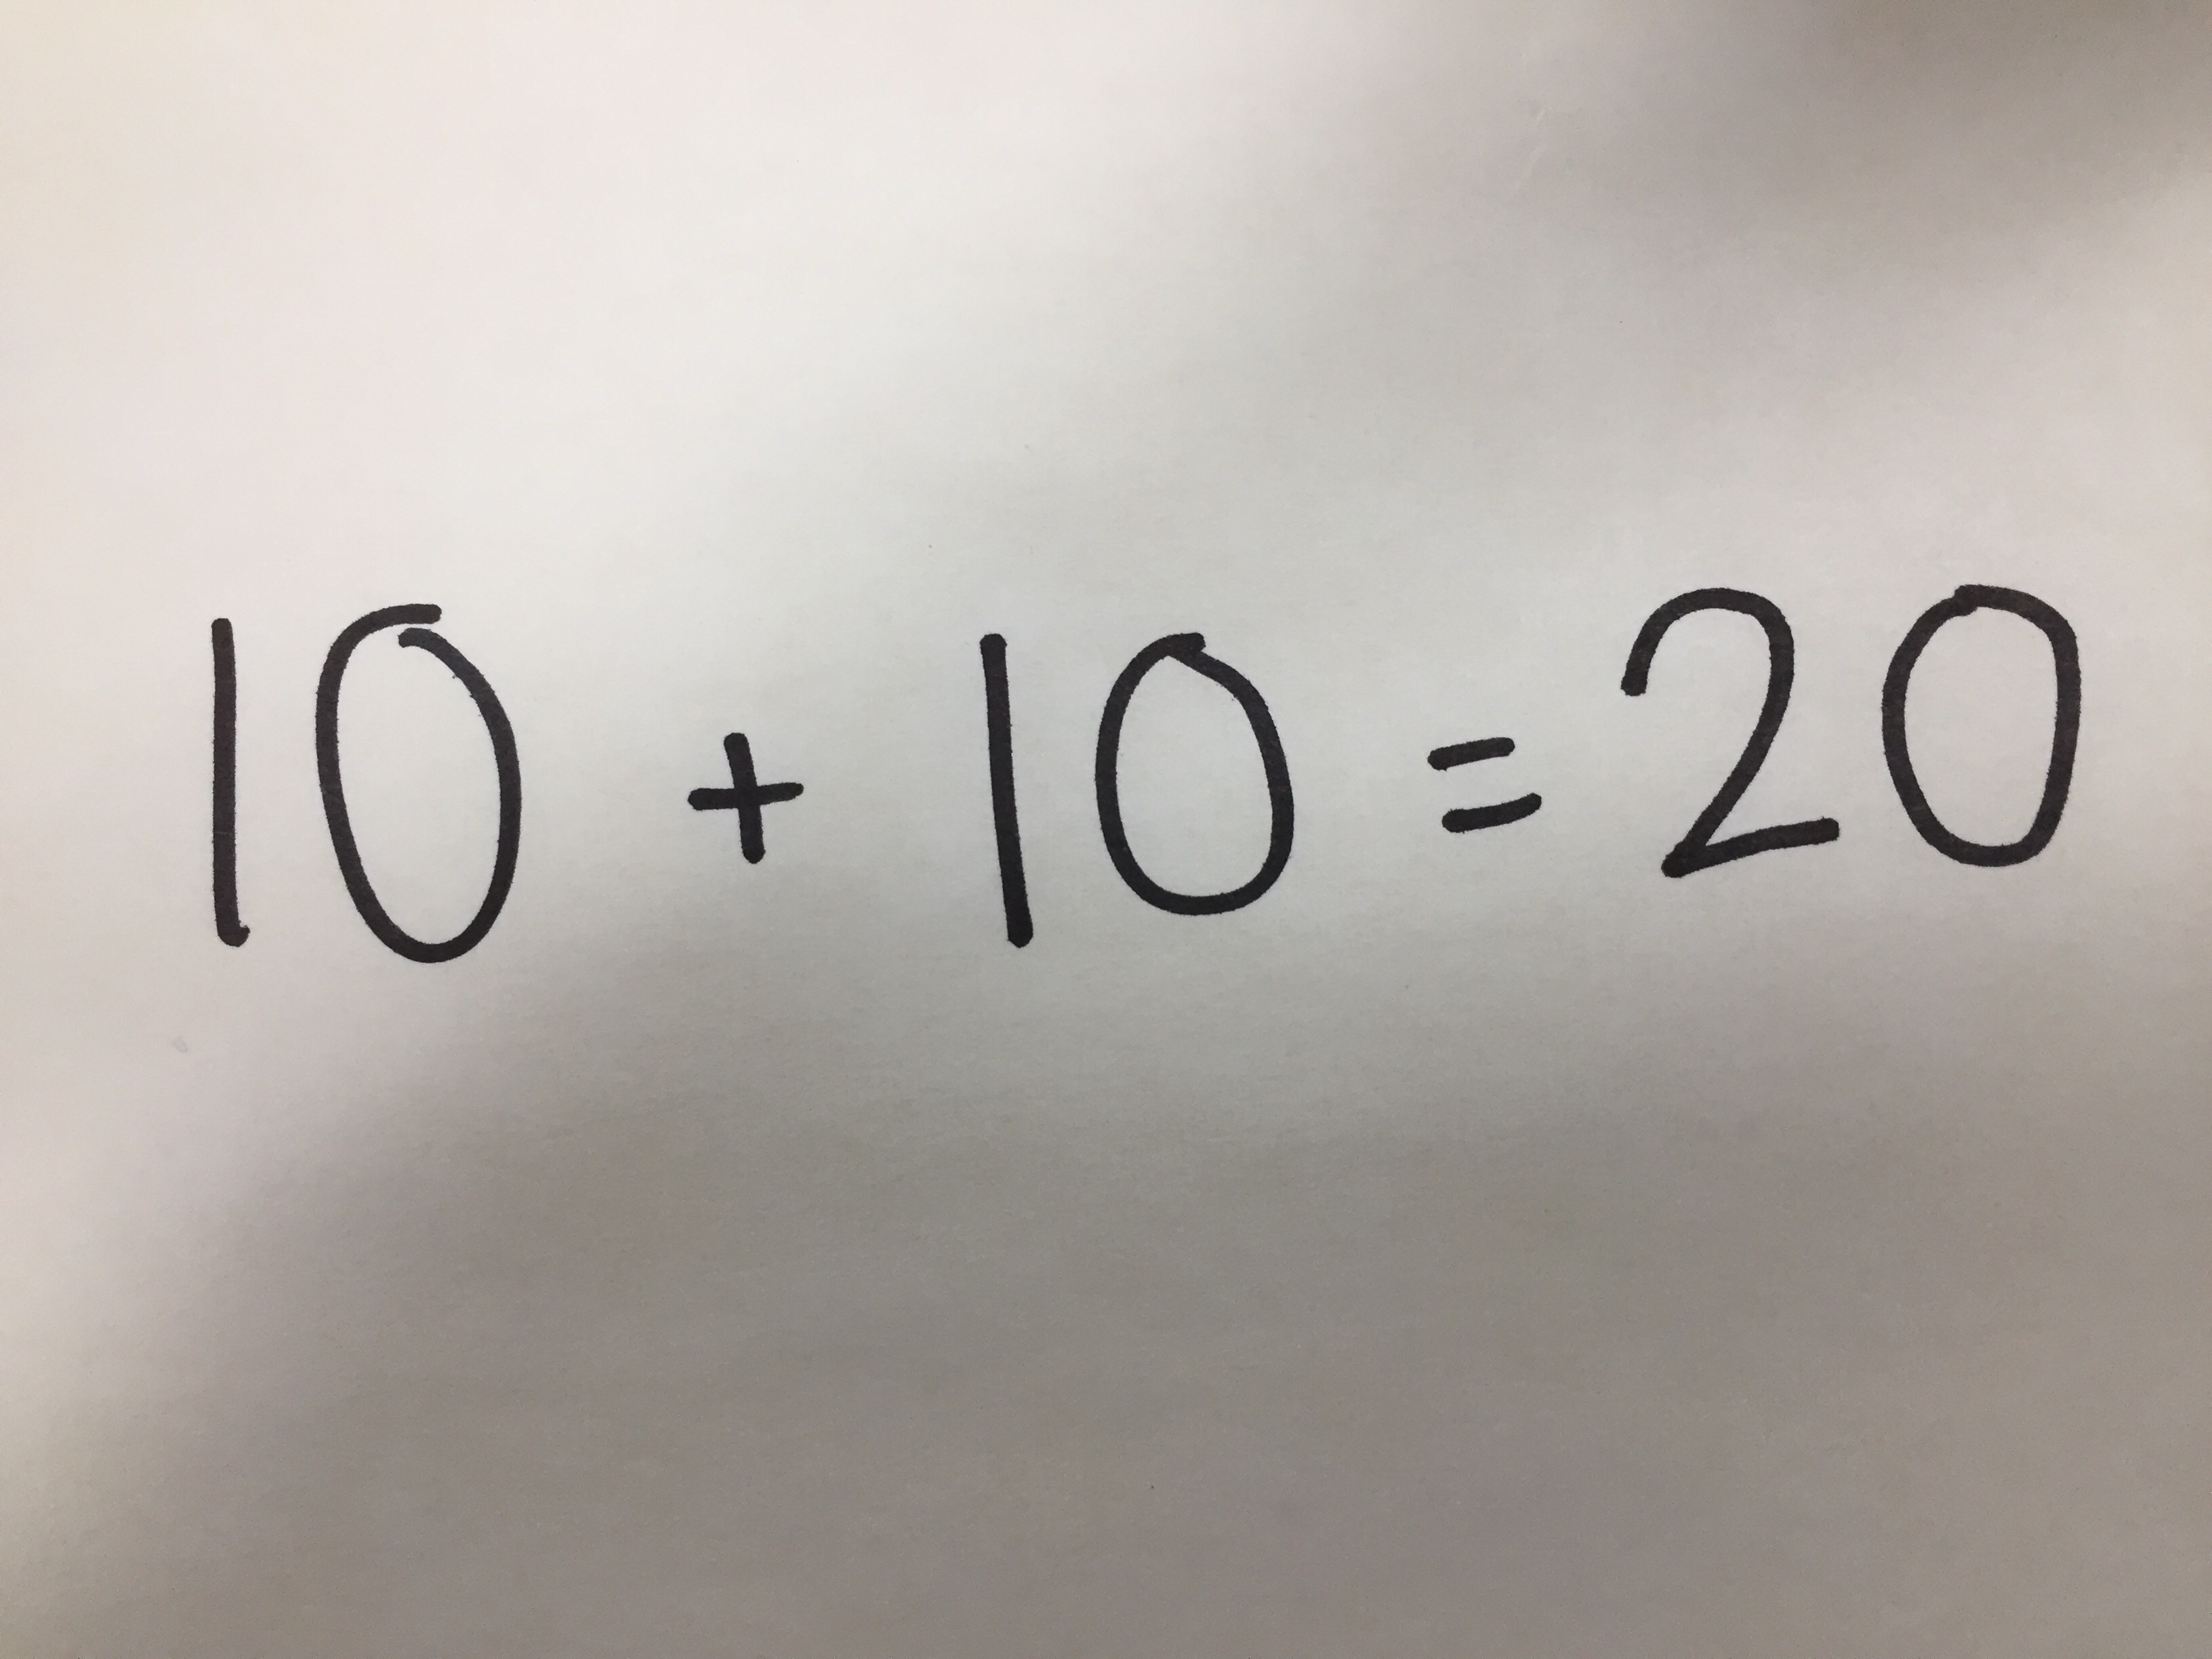 10 + 10 = 20